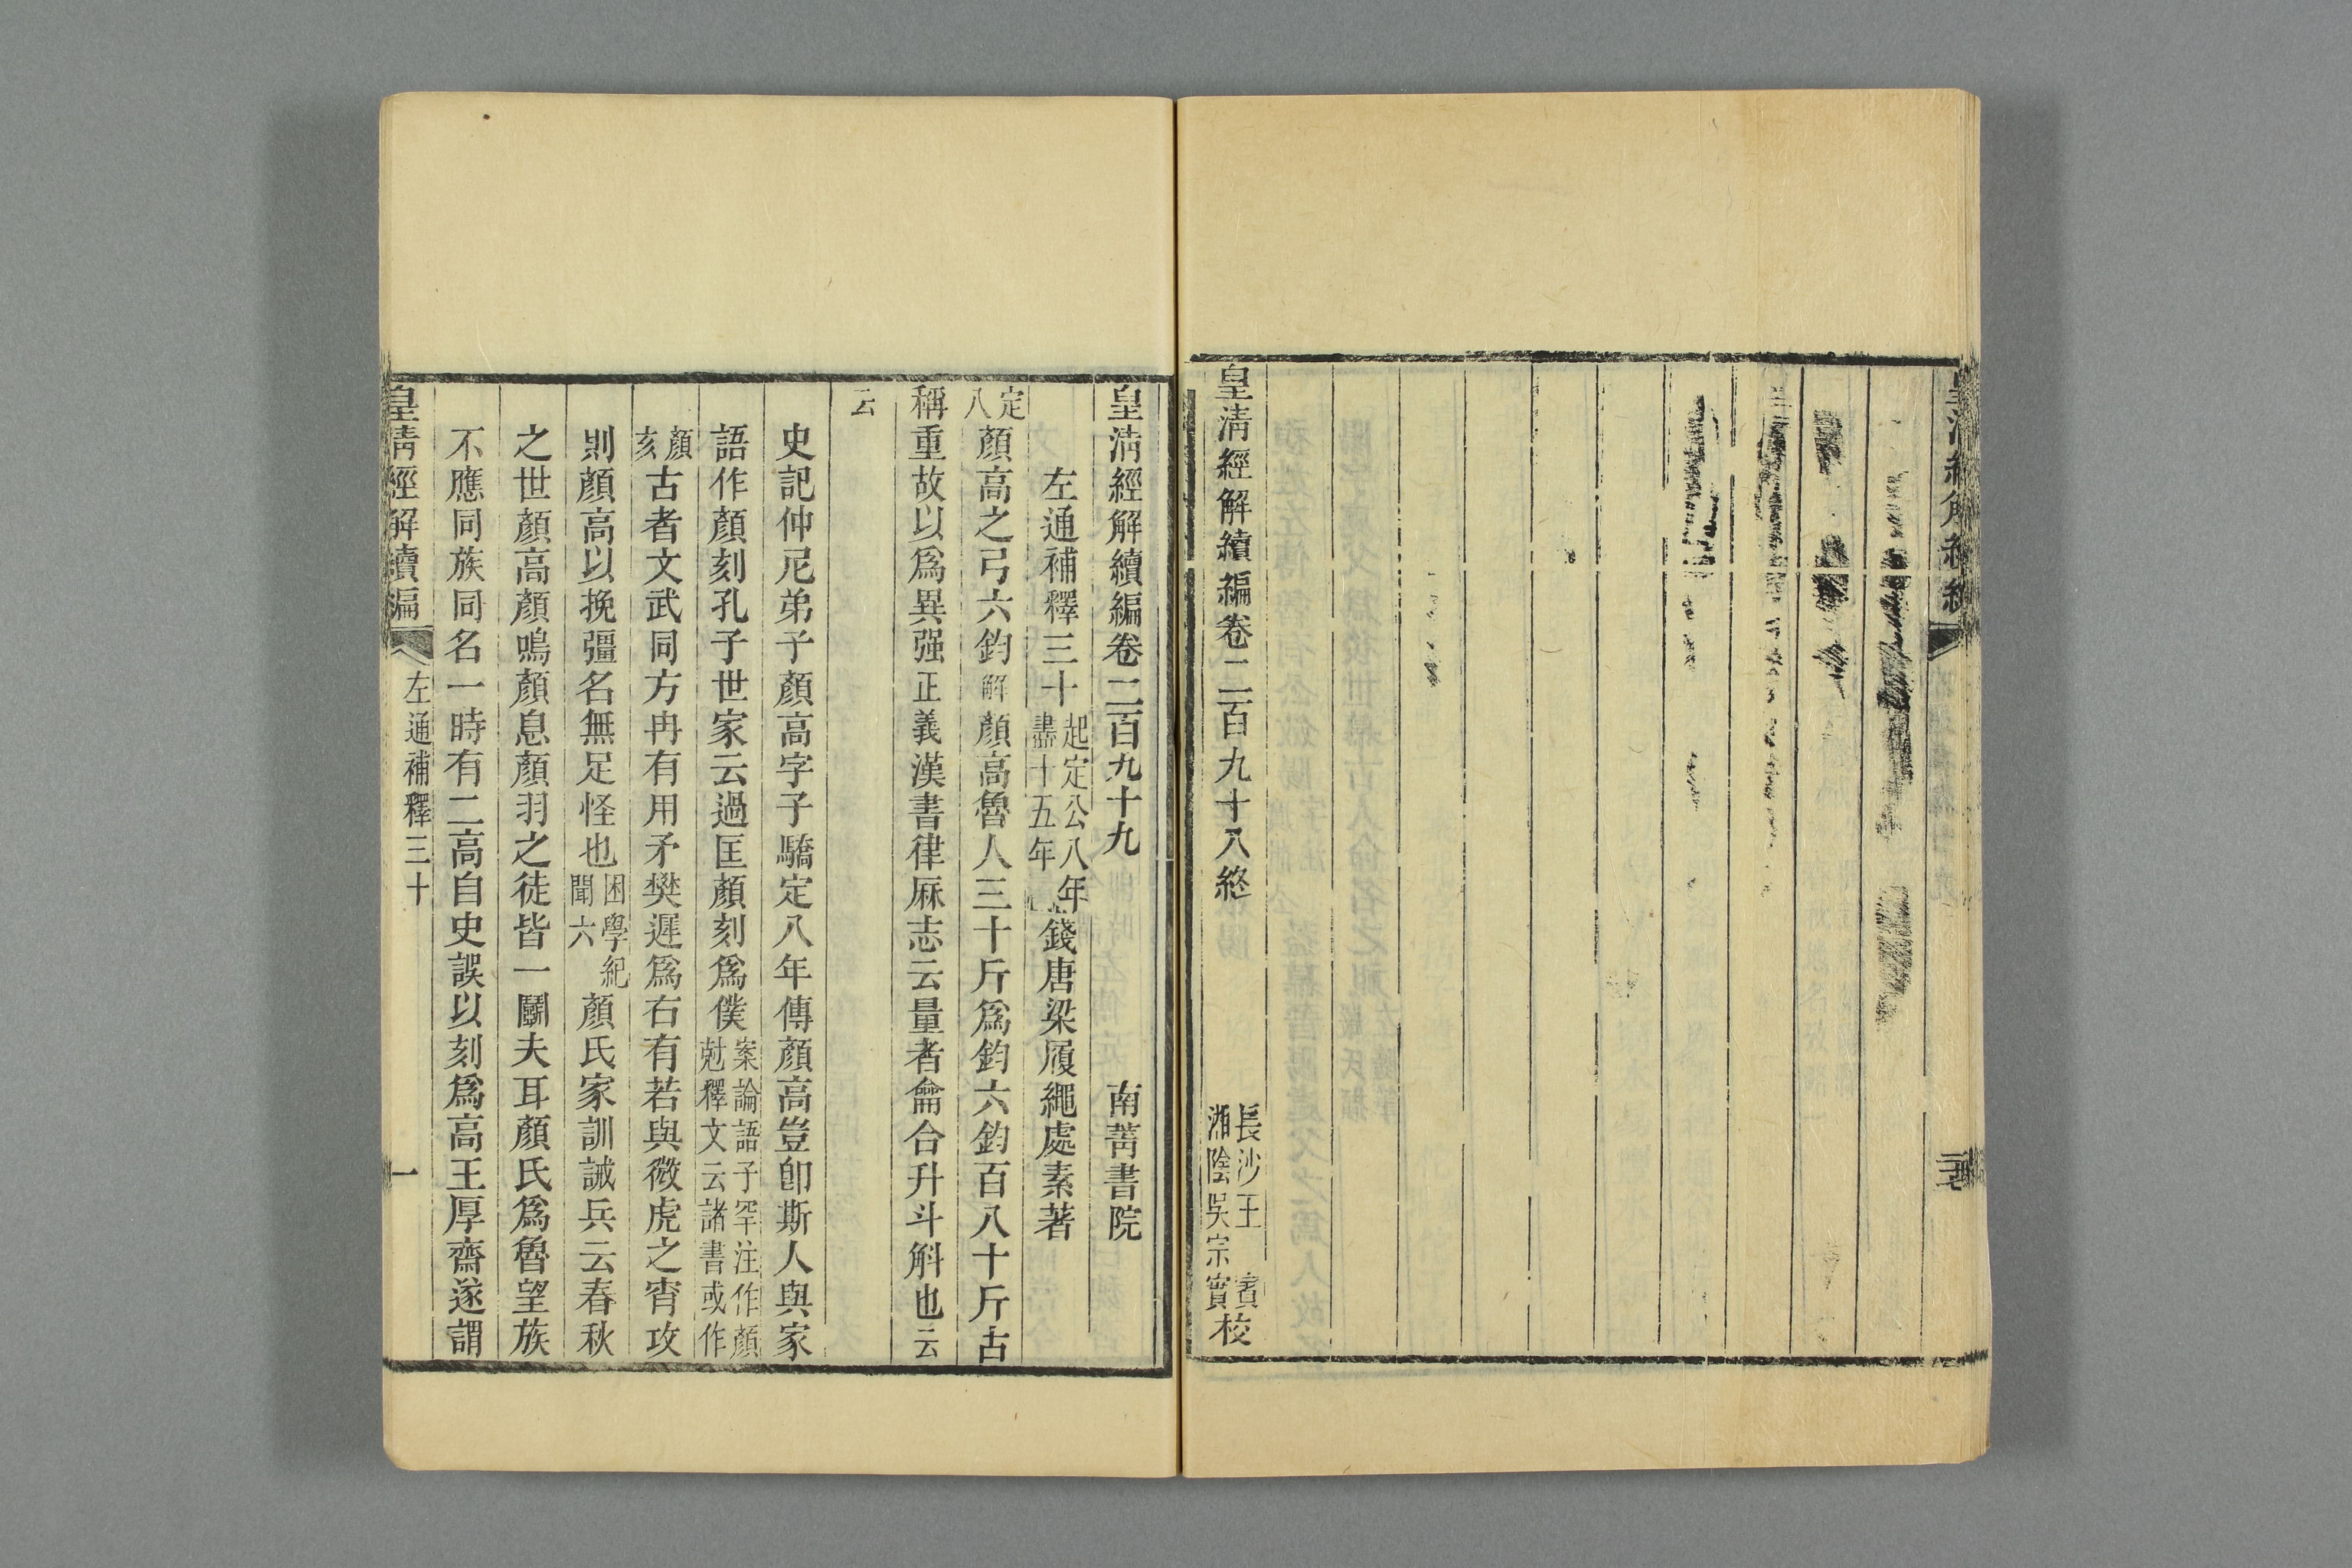 皇清經解續編卷二百九十八終
長沙王
湘陰吳宗實校
皇清經解續編卷二百九十九
南菁書院
左通補釋三十
起定公八年
盡十五年
錢唐梁履繩處素著
定
八
顏高之弓六鈞解顏高魯人三十斤爲鈞六鈞百八十斤古
稱重故以爲異强正義漢書律厤志云量者龠合升斗斛也云
云
史記仲尼弟子顏高字子驕定八年傳顏高豈卽斯人與家
語作顏刻孔子世家云過匡顏刻爲僕
案論語子罕注作顏
尅釋文云諸書或作
顏
亥
古者文武同方冉有用矛樊遲爲右有若與微虎之宵攻
則顏高以挽彊名無足怪也
困學紀
聞六
顏氏家訓誡兵云春秋
之世顏高顏鳴顏息顏羽之徒皆一鬬夫耳顏氏爲魯望族
不應同族同名一時有二高自史誤以刻爲高王厚齋遂謂
皇清經解續編
左通補釋三十
一